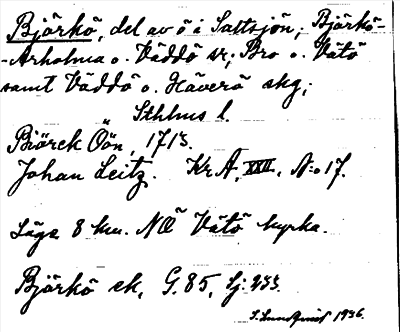 Björkö, del av ö i Saltsjön, Björkö-
-Arholma o. Väddö sr; Bro o. Vätö
samt Väddö o. Häverö skg,
Sthlms l.
Biörck Öön, 1713.
Johan Leitz. Kr A, XXII. N:o 17.
Läge 8 km. NO Vätö kyrka.
Björkö ek, G. 85, Lj: 233.
S. Lundquist 1936.